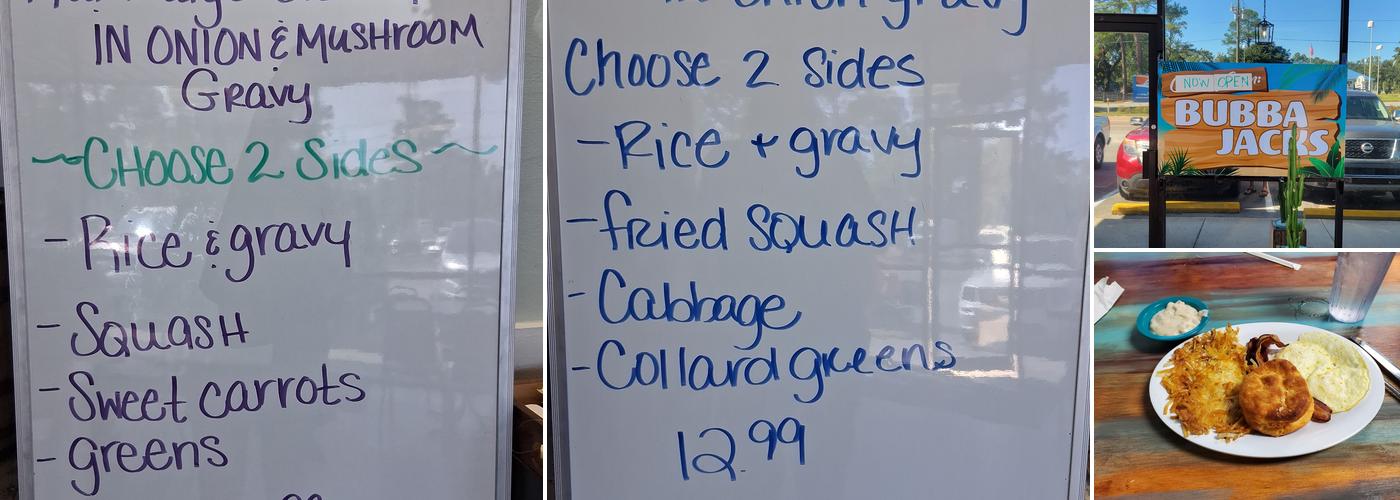 IN ONION & MUSHROOM
GRAVY
~CHOOSE 2 Sides~
- Rice & gravy
- SQUASH
- Sweet carrots
- greens
in onion gravy
Choose 2 sides
- Rice + gravy
- fried SQUASH
- Cabbage
- Collard greens
12.99
NOW OPEN
BUBBA
JACKS